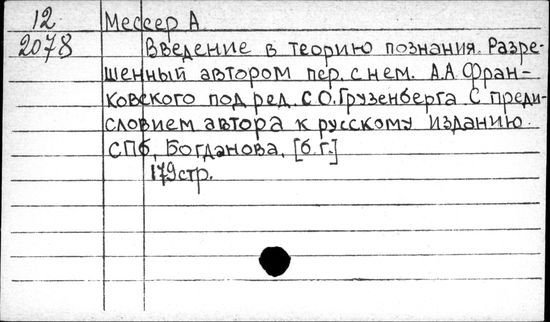 12 Мессер А
2078 Введение в теорию познания. Разре-
шенный автором пер. с нем. А.А. Фран-
ковского под ред. С О. Грузенберга С преди-
словием автора к русскому изданию.
СПб, Богданова, [б.г.]
179 стр.